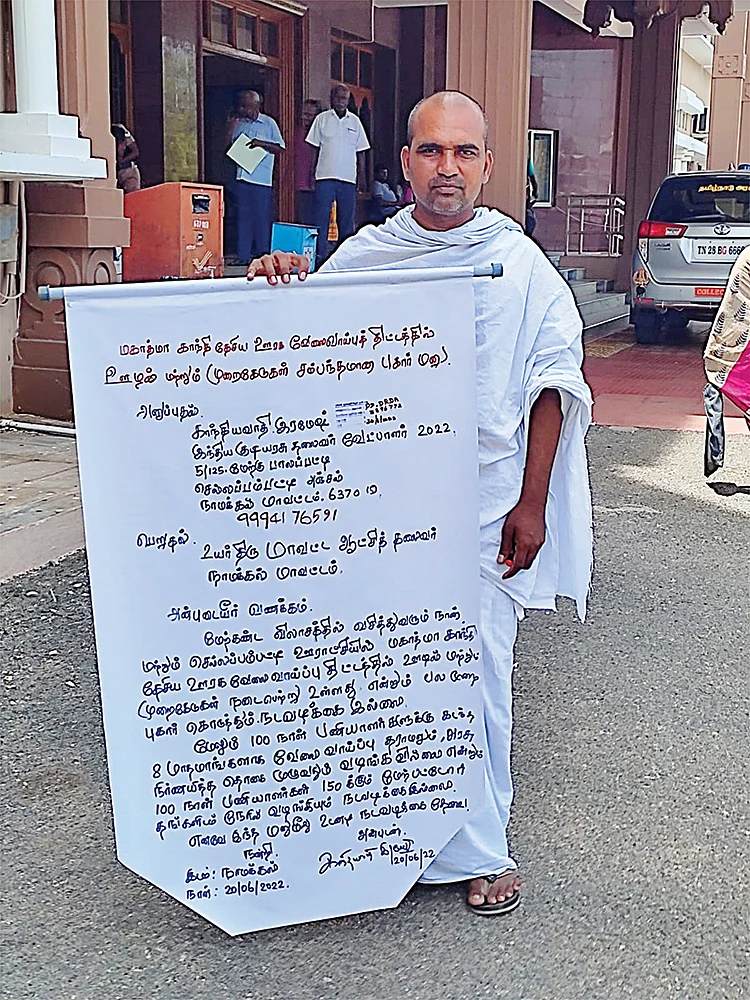 மகாத்மா காந்தி தேசிய ஊரக வேலைவாய்ப்புத் திட்டத்தில்
ஊழல் மற்றும் முறைகேடுகள் சம்பந்தமான புகார் மனு.
அனுப்புதல்.
காந்தியவாதி ரமேஷ்
இந்திய குடியரசு தலைவர் வேட்பாளர் 2022.
5/125. மேற்கு பாலப்பட்டி
செல்லப்பம்பட்டி அஞ்சல்
நாமக்கல் மாவட்டம். 6370 19.
99941 76591
பெறுதல்.
உயர்திரு மாவட்ட ஆட்சித் தலைவர்
நாமக்கல் மாவட்டம்.
அன்புடையீர் வணக்கம்.
மேற்கண்ட விலாசத்தில் வசித்துவரும் நான்.
மற்றும் செல்லப்பம்பட்டி ஊராட்சியில் மகாத்மா காந்தி
தேசிய ஊரக வேலைவாய்ப்பு திட்டத்தில் ஊழல் மற்றும்
முறைகேடுகள் நடைபெற்று உள்ளது. என்றும் பல முறை
புகார் கொடுத்தும். நடவடிக்கை இல்லை.
மேலும் 100 நாள் பணியாளர்களுக்கு கடந்த
8 மாதமாங்களாக வேலை வாய்ப்பு தராமலும், அரசு
நிர்ணயித்த தொகை முழுவதும் வழங்கவில்லை என்றும்
100 நாள் பணியாளர்கள் 150 க்கும் மேற்பட்டோர்
தங்களிடம் நேரில் வழங்கியும் நடவடிக்கை இல்லை.
எனவே இந்த மனுமீது உடனடி நடவடிக்கை தேவை!
நன்றி.
அன்புடன்.
இடம்: நாமக்கல்
நாள்: 20/06/2022.
20/06/22
தமிழ்நாடு அரசு
TN 28 BG 666
COLLEC